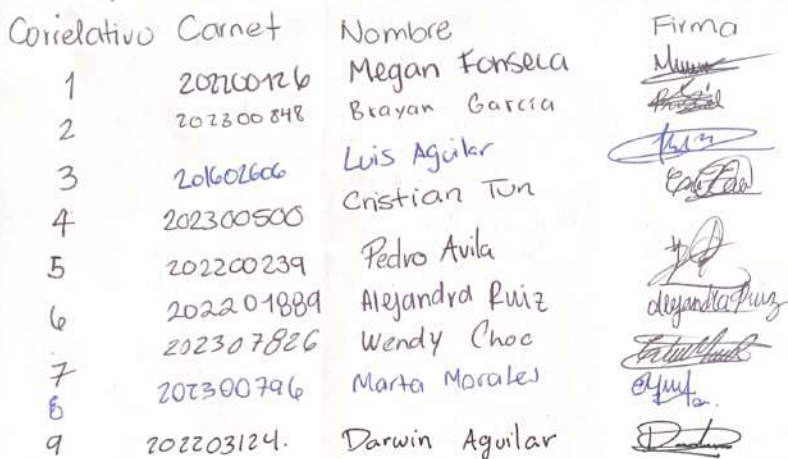 Correlativo Carnet Nombre Firma
1 202200126 Megan Fonseca
2 202300848 Brayan García
3 201602606 Luis Aguilar
4 202300500 Cristian Tun
5 202200239 Pedro Avila
6 202201889 Alejandra Ruiz Alejandra Ruiz
7 202307826 Wendy Choc
8 202300796 Marta Morales
9 202203124. Darwin Aguilar